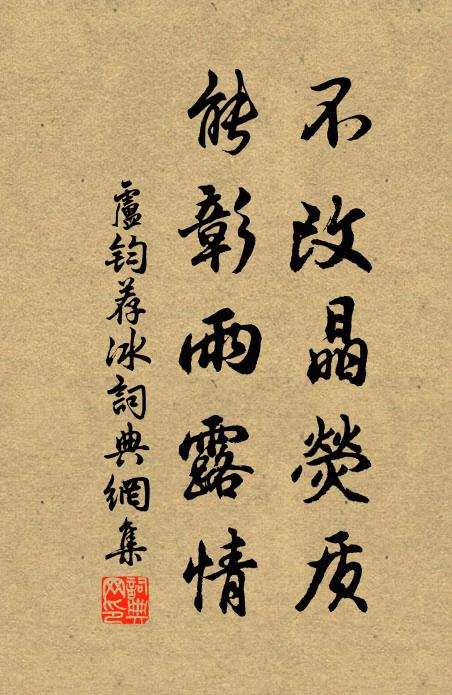 不改晶熒质
能彰雨露情
盧鈞荐冰詞典網集
詞典网印